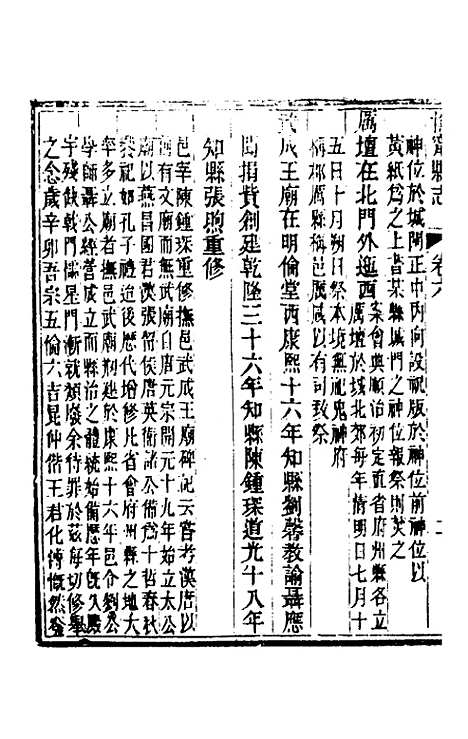 寧縣志 卷六
神位於城闉正中內向設祝版於神位前神位以
黃紙爲之上書某縣城門之神位報祭則焚之
厲壇在北門外迤西案會典順治初定直省府州縣各立
厲壇於城北郊每年清明日七月十
五日十月朔日祭本境無祀鬼神府
稱郡厲縣稱邑厲咸以有司致祭
武成王廟在明倫堂西康熙十六年知縣劉馨教諭聶應
聞捐貲創建乾隆三十六年知縣陳鍾琛道光十八年
知縣張煦重修
邑宰陳鍾琛重修撫邑武成王廟碑記云嘗考漢唐以
前有文廟而無武廟自唐元宗開元十九年始立太公
廟以燕昌國君漢張留侯唐英衛諸公備爲十哲春秋
祭祀如孔子禮迨後歷代增修比省會府州縣之地大
率多立廟者撫邑武廟剏建於康熙十六年邑令劉公
學師聶公經營成立而縣治之體統始備歷年旣久殿
宇殘缺戟門櫺星門漸就頹廢余待罪於茲每切修舉
之念歲辛卯吾宗五倫六吉昆仲偕王君化傳慨然登